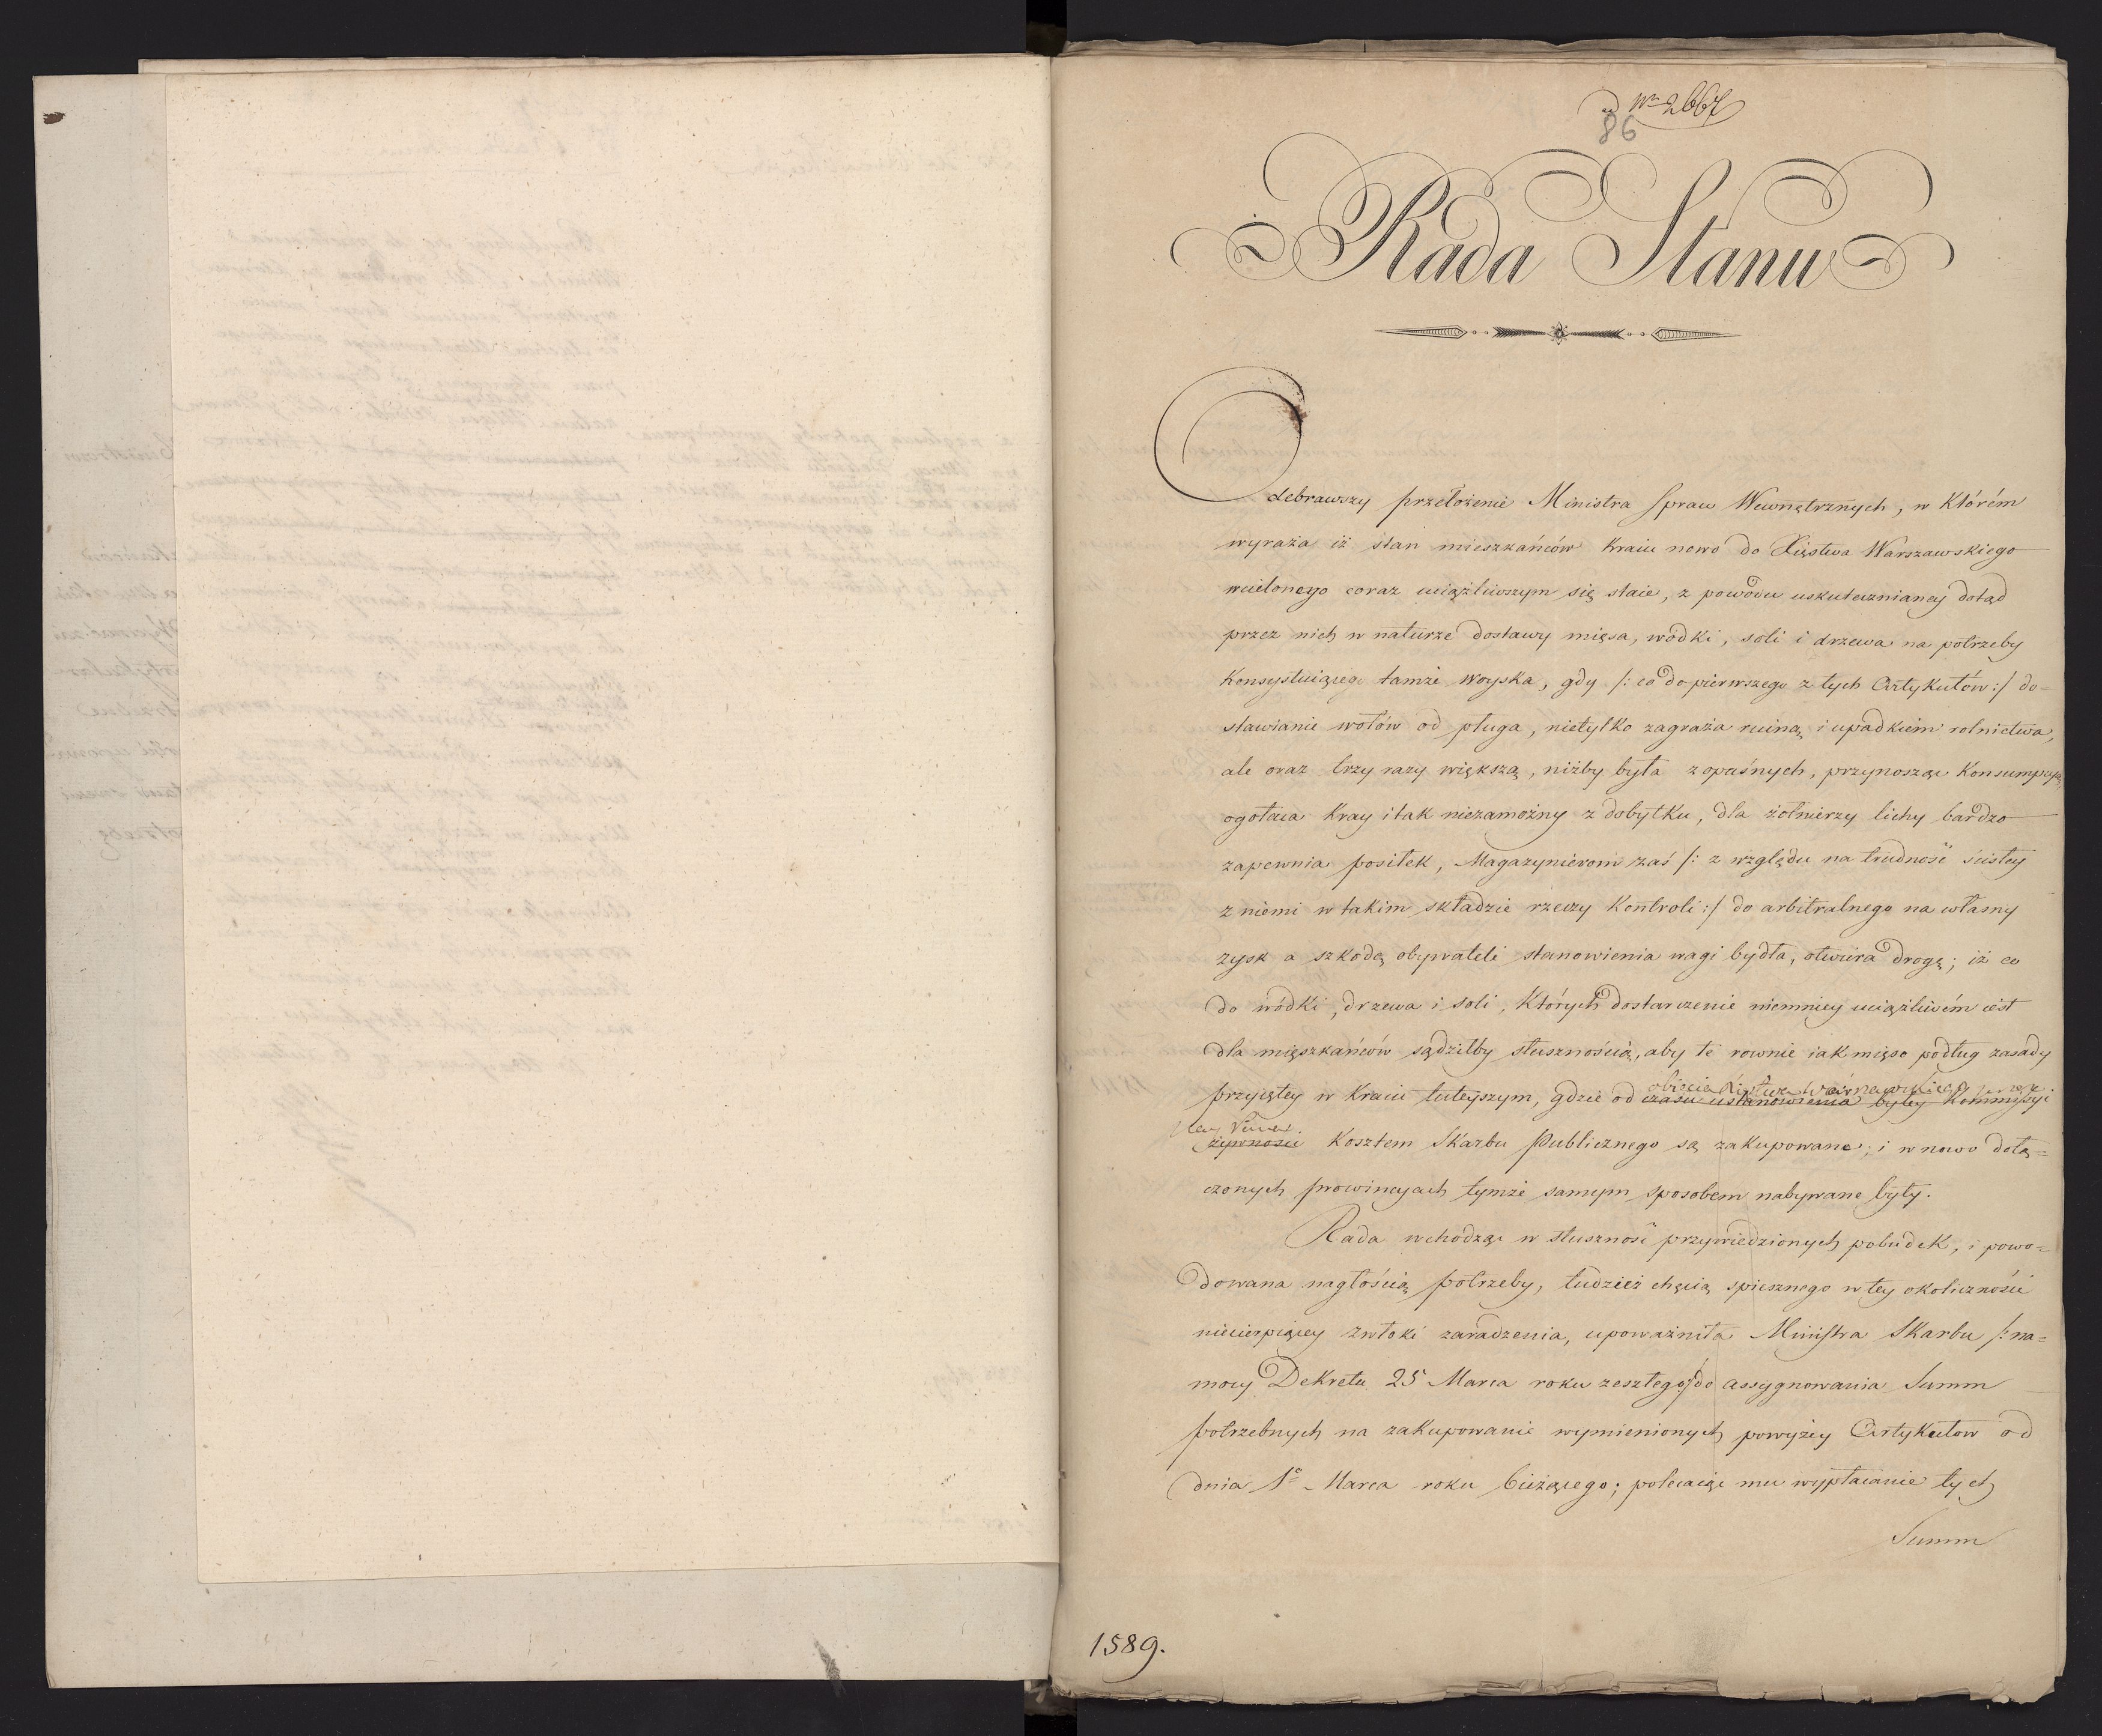 ad Nr 2667
86
Rada Stanu
Odebrawszy przełożenie Ministra Spraw Wewnętrznych, w którém
wyraża iż stan mieszkańców kraiu nowo do Xięstwa Warszawskiego
wcielonego coraz uciążliwszym się staie, z powodu uskuteczнianey dotąd
przez nich w naturze dostawy mięsa, wódki, soli i drzewa na potrzeby
konsystuiącego tamże woyska, gdy /: co do pierwszego z tych Artykułów :/ do=
stawianie wołów od pługa, nietylko zagraża ruiną i upadkiem rolnictwa,
ale oraz trzy razy większą, niżby była z opaśnych, przynosząc konsumpcyą,
ogołaca kray i tak niezamożny z dobytku, dla żołnierzy lichy bardzo
zapewnia posiłek, Magazynierom zaś /: z względu na trudność ścisłey
z niemi w takim składzie rzeczy kontroli :/ do arbitralnego na własny
zysk a szkodę obywateli stanowienia wagi bydła, otwiera drogę; iż co
do wódki, drzewa i soli, których dostarczenie niemniey uciążliwém iest
dla mięszkańców sądziłby słusznością, aby te rownie iak mięso podług zasady
obięcia Xięstwa Warszawskiego przez
przyiętey w kraiu tuteyszym, gdzie od czasu ustanowienia byłey Kommissyi
żywności kosztem Skarbu Publicznego są zakupowane; i w nowo dołą=
czonych prowincyach tymże samym sposobem nabywane były.
Rada wchodząc w słuszność przywiedzionych pobudek, i powo=
dowana nagłością potrzeby, tudzież chęcią spiesznego w tey okoliczności
niecierpiącey zwłoki zaradzenia, upoważniła Ministra Skarbu /: na=
mocy Dekretu 25 Marca roku zeszłego :/ do assygnowania Summ
potrzebnych na zakupowanie wymienionych powyżey Artykułow od
dnia 1o Marca roku bieżącego; polecaiąc mu wypłacanie tych
Summ
1589.